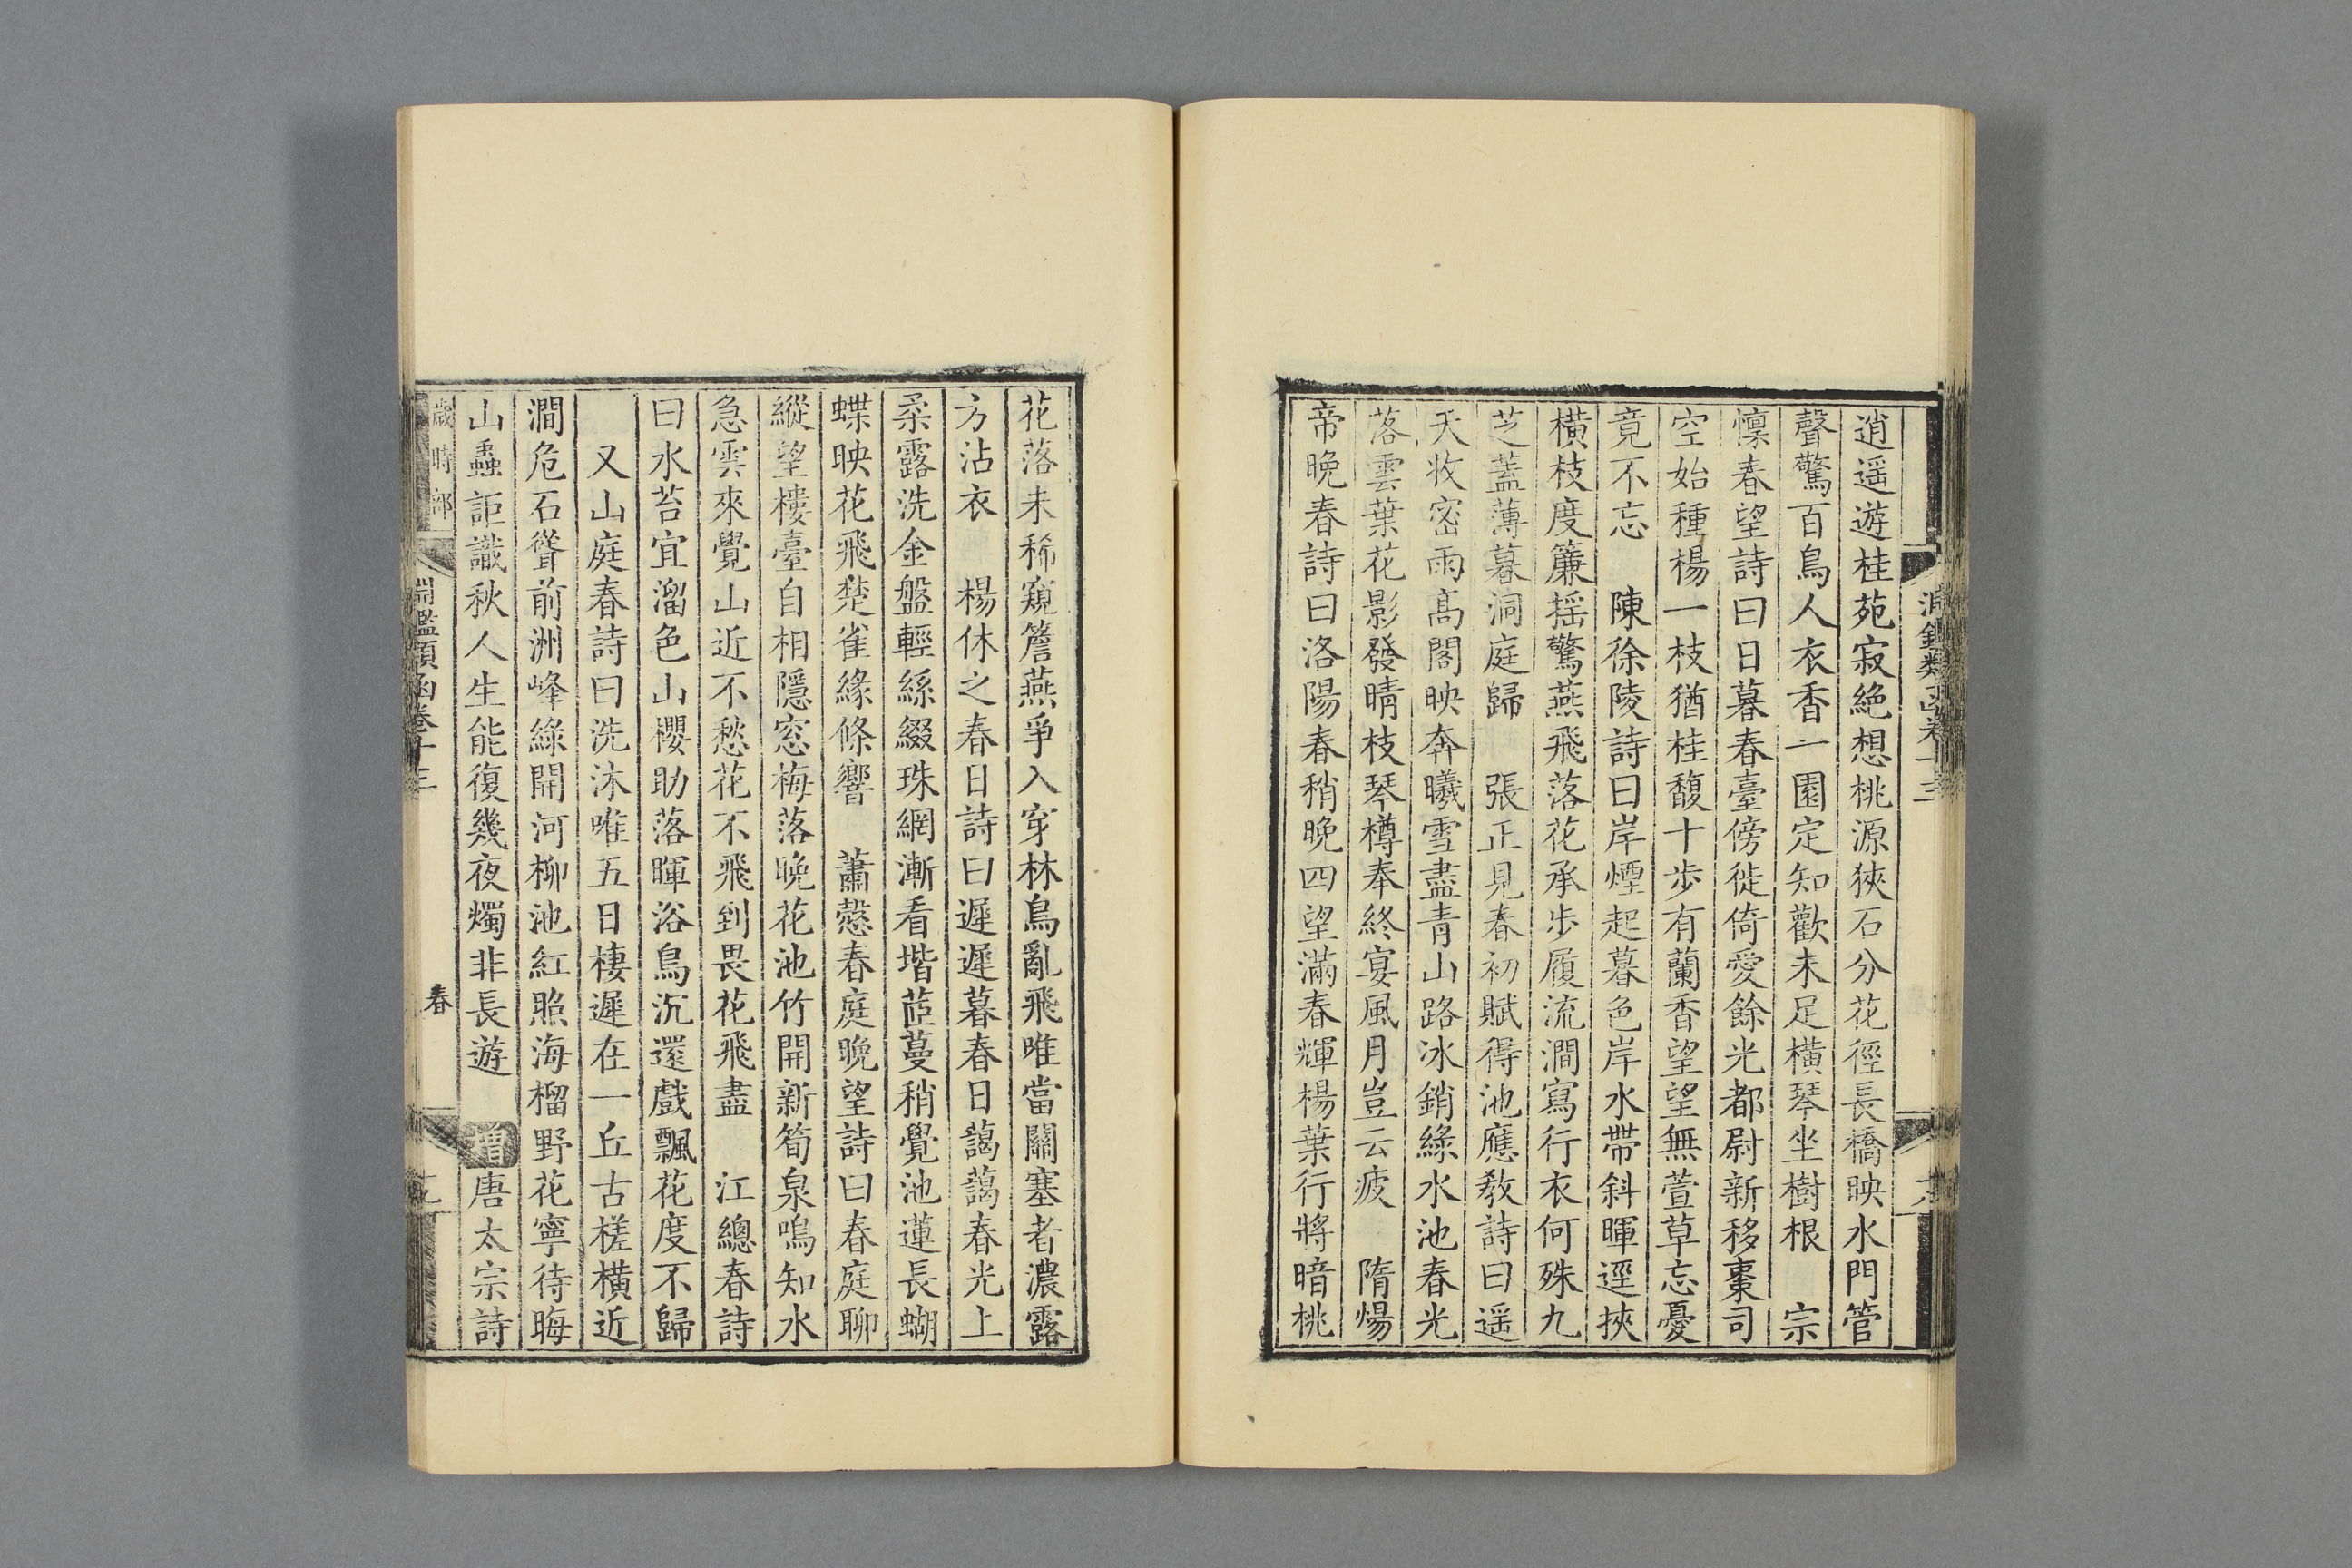 淵鑑類函卷十三
逍遥遊桂苑寂絶想桃源狹石分花徑長橋映水門管
聲驚百鳥人衣香一園定知歡未足橫琴坐樹根　宗
懍春望詩曰日暮春臺傍徙倚愛餘光都尉新移棗司
空始種楊一枝猶桂馥十步有蘭香望望無萱草忘憂
竟不忘　陳徐陵詩曰岸煙起暮色岸水帶斜暉逕挾
橫枝度簾揺驚燕飛落花承步履流澗寫行衣何殊九
芝蓋薄暮洞庭歸　張正見春初賦得池應敎詩曰遥
天收密雨高閣映奔曦雪盡青山路冰銷綠水池春光
落雲葉花影發晴枝琴樽奉終宴風月豈云疲　隋煬
帝晚春詩曰洛陽春稍晚四望滿春輝楊葉行將暗桃
花落未稀窺簷燕爭入穿林鳥亂飛唯當關塞者濃露
方沾衣　楊休之春日詩曰遲遲暮春日藹藹春光上
柔露洗金盤輕絲綴珠網漸看堦茝蔓稍覺池蓮長蝴
蝶映花飛楚雀緣條響　蕭慤春庭晚望詩曰春庭聊
縱望樓臺自相隱窓梅落晚花池竹開新筍泉鳴知水
急雲來覺山近不愁花不飛到畏花飛盡　江總春詩
曰水苔宜溜色山櫻助落暉浴鳥沉還戲飄花度不歸
又山庭春詩曰洗沐唯五日棲遲在一丘古槎橫近
澗危石聳前洲峰綠開河柳池紅照海榴野花寧待晦
山蟲詎識秋人生能復幾夜燭非長遊　增唐太宗詩
歲時部　淵鑑類函卷十三　春